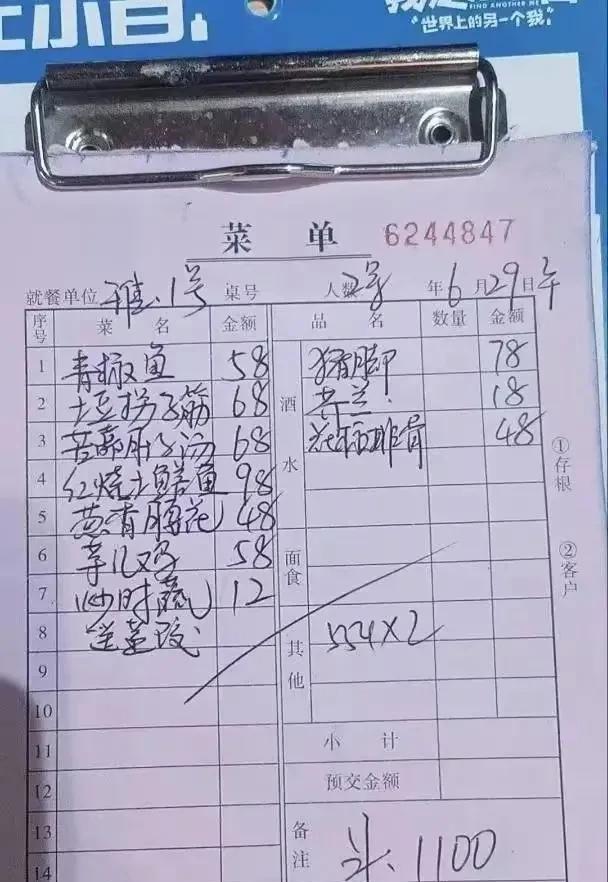 小白
FIND ANOTHER ME
世界上的另一个我
菜 单 6244847
就餐单位 雅.1号 桌号 人数 2号 年6月29日午
序号 菜 名 金额 品 名 数量 金额
1 青椒鱼 58 酒水 猪脚 78
2 土豆拐子筋 68 芥兰 18
3 68 排骨 48
4 红烧土鳝鱼 98
5 葱香腰花 48
6 芋儿鸡 58 面食
7 炒时蔬 12
8 送 其他 554X2
9
10
11 小 计
12 预交金额
13 备注 1100
14
①存根
②客户